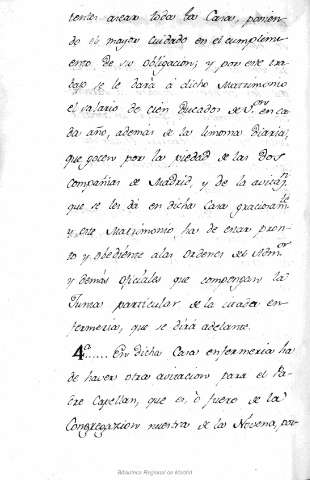 tener asear toda la Casa, ponien-
do el mayor cuidado en el cumplimi-
ento de su obligacion; y por este tra-
bajo se le dará á dicho Matrimonio
el salario de cien Ducados de V.on en ca-
da año, ademas de la limosna diaria,
que gocen por la piedad de las dos
compañias de Madrid, y de la avitaz.n
que se les dá en dicha Casa graciosam.te
y este Matrimonio ha de estar pron-
to y obediente a las ordenes del Adm.or
y demás oficiales que compongan la
Junta particular de la citada en-
fermeria, que se dirá adelante.
4.a...... En dicha Casa enfermeria ha
de haver otra avitacion para el Pa-
dre Capellan, que en ó fuere de la
Congregazion nuestra de la Novena, por
Biblioteca Regional de Madrid